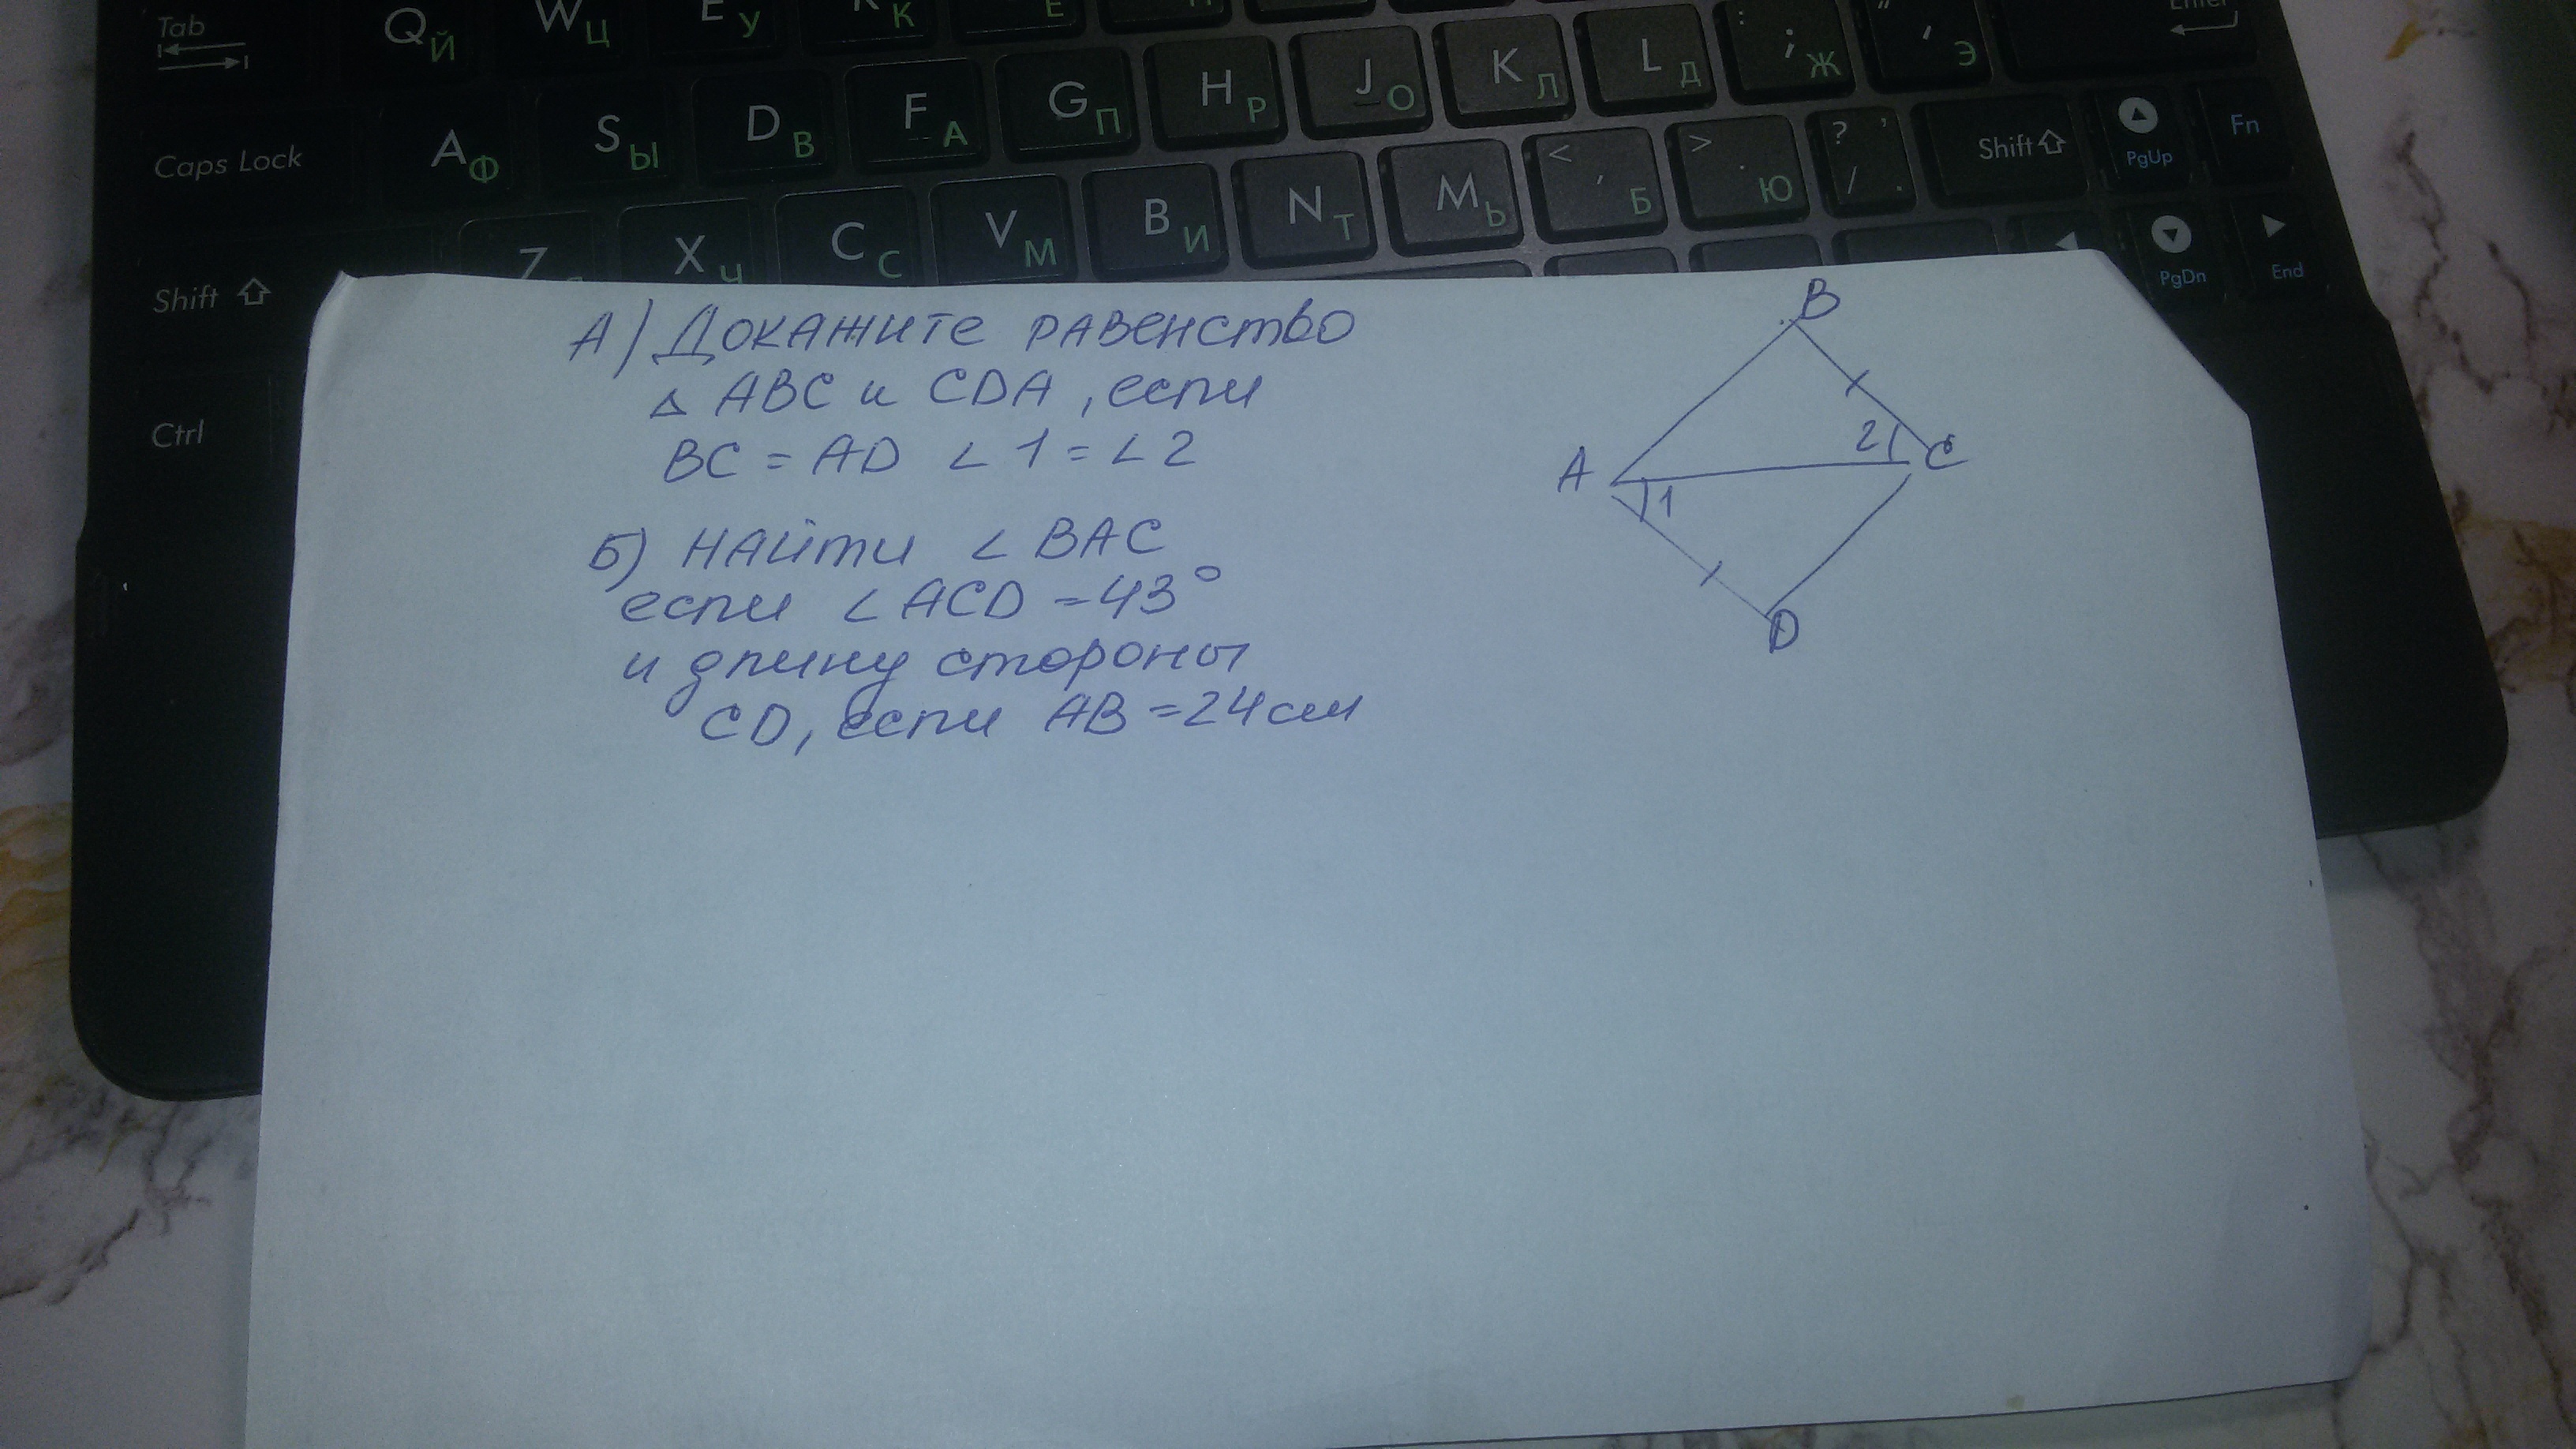 Tab Q Й W Ц E У К Е Enter
Caps Lock A Ф S Ы D В F А G П H Р J О K Л L Д : ; Ж " ' Э
Shift Z X Ч C С V М B И N Т M Ь < , Б > . Ю ? , / . Shift PgUp Fn
Ctrl PgDn End
А) Докажите равенство
△ ABC и CDA, если
BC = AD ∠1 = ∠2
Б) Найти ∠BAC
если ∠ACD = 43°
и длину стороны
CD, если AB = 24см
B
2
A C
1
D